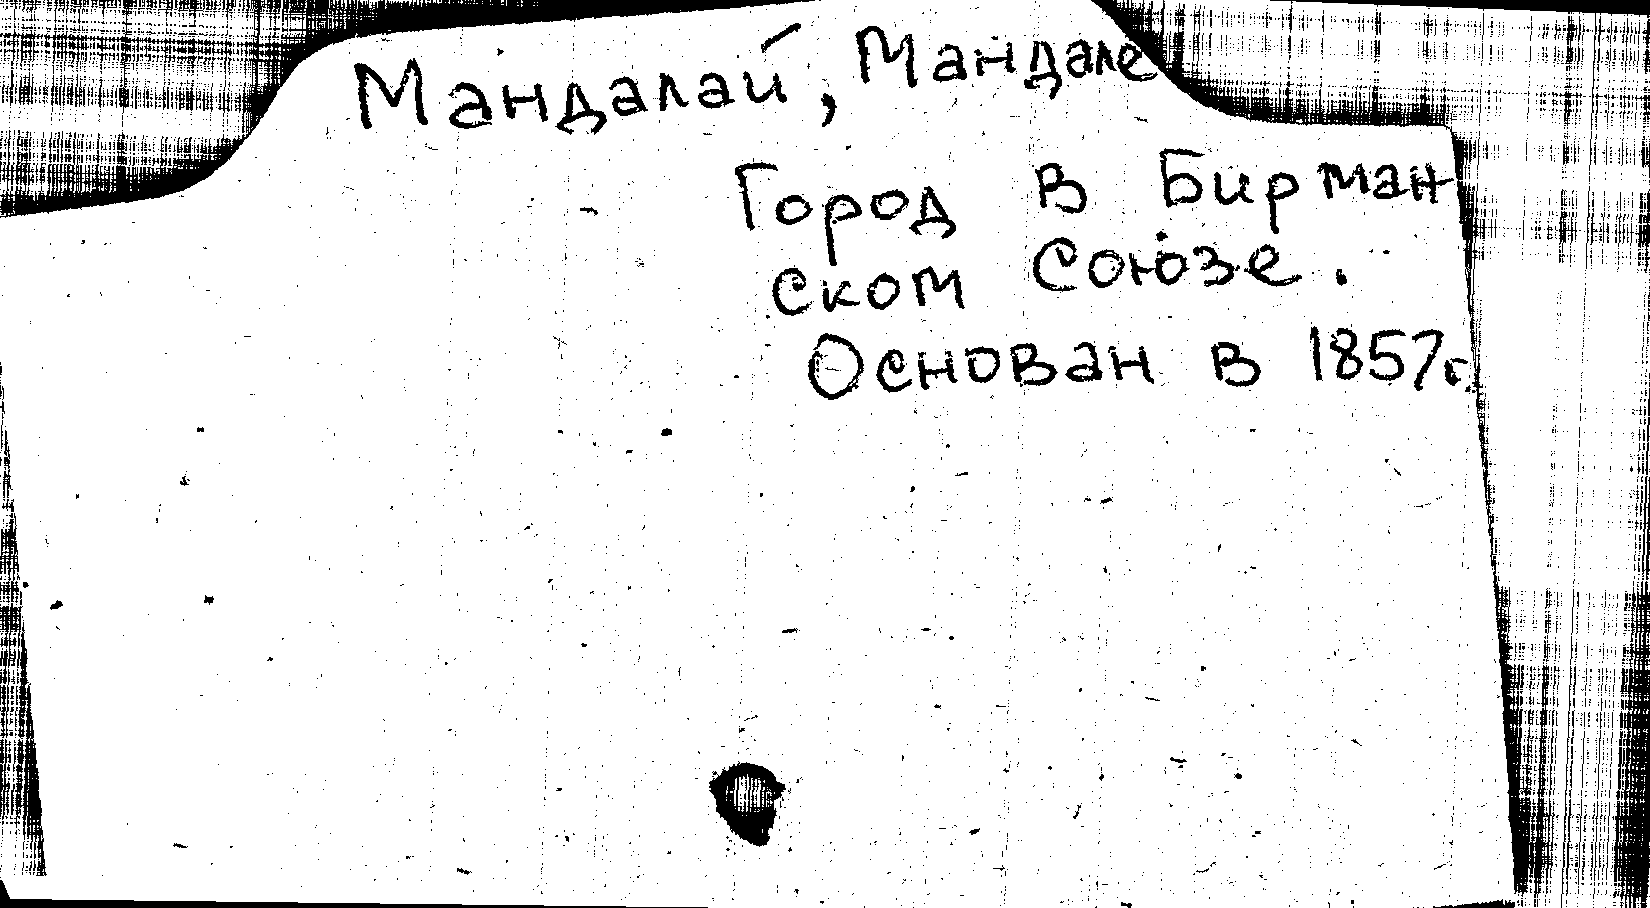 Мандалай, Мандале
Город в Бирман
ском Союзе.
Основан в 1857г.